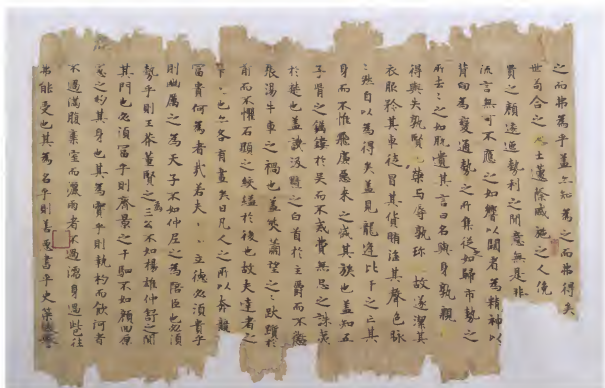 之而弗為乎盖亦知為之而弗得矣
世苟合之士蘧蒢戚施之人俛
貴之顏逶迤勢利之間意無是非
流言無可不應之如響以闚看為精神以
背向為變通勢之所集從之如歸市勢之
所去之如脫遺其言曰名與身孰親
得與失孰賢榮与辱孰珎故遂潔其
衣服矜其車徒冒其貨賄淫其聲色脉
〻然自以為得矣盖見龍逢比干之亡其
身而不惟飛廉惡來之滅其族也盖知五
子胥之鏤於吳而不戒費無忌之誅夷
於楚也盖譏汲黯之白首於主爵而不懲
張湯牛車之禍也盖笑蕭望之跋躓於
前而不懼石顯之絞縊於後也故夫達者之
也亦各有盡矣曰凡人之所以奔競
富貴何為者哉若夫立德必須貴乎
則幽厲之為天子不如仲尼之為陪臣也必須
勢乎則王莽董賢之為三公不如楊雄仲舒之闃
其門也必須富乎則齊景之千駟不如顏回原
憲之約其身也其為實乎則執杓而飲河者
不過滿腹棄室而灑雨者不過濡身過此以往
弗能受也其為名乎則善惡書乎史策